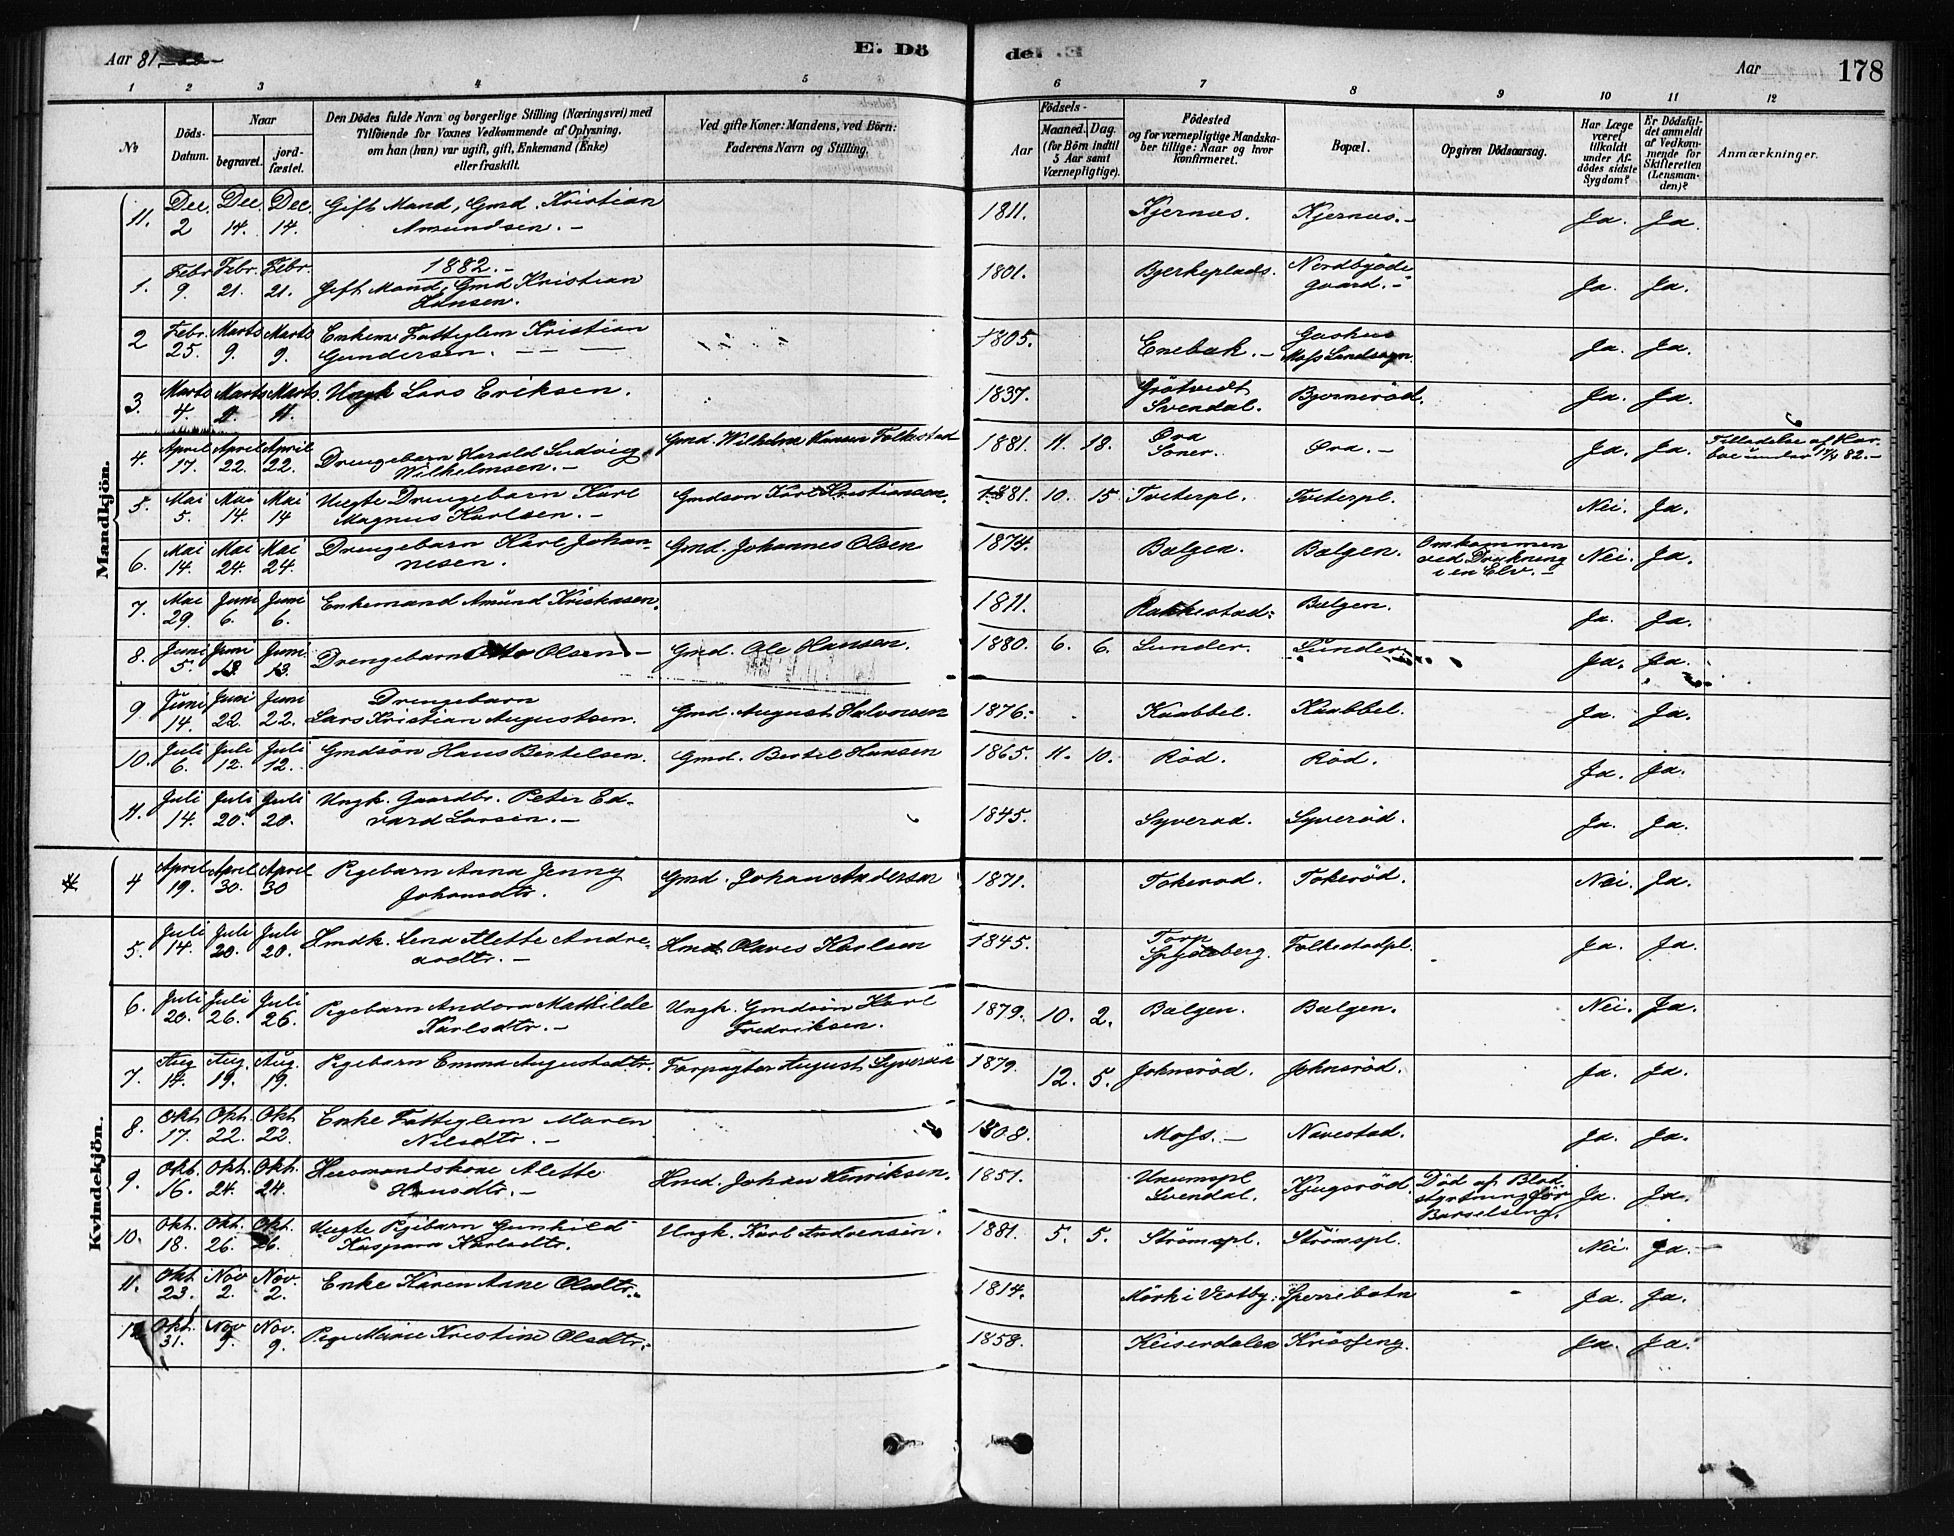 Aar 81
E. Dö
de. E.
Aar
178
1 2 3 4 5 6 7 8 9 10 11 12
No
Döds-Datum.
Naar
begravet.
jord-fæstet.
Den Dödes fulde Navn og borgerlige Stilling (Næringsvei) med
Tilföiende for Voxnes Vedkommende af Oplysning,
om han (hun) var ugift, gift, Enkemand (Enke)
eller fraskilt.
Ved gifte Koner: Mandens, ved Börn:
Faderens Navn og Stilling.
Födsels-
Aar
Maaned. Dag.
(for Börn indtil
5 Aar samt
Værnepligtige).
Födested
og for værnepligtige Mandska-
ber tillige: Naar og hvor
konfirmeret.
Bopæl.
Opgiven Dödsaarsag.
Har Læge
været
tilkaldt
under Af-
dödes sidste
Sygdom?
Er Dödsfal-
det anmeldt
af Vedkom-
mende for
Skifteretten
(Lensman-
den)?
Anmærkninger.
Mandkjön.
11. Dec. 2 Dec. 14. Dec. 14. Gift Mand, Gmd. Kristian
Amundsen. – 1811. Kjernæs. Kjernæs. – Ja. Ja.
1882. –
1. Febr 9. Febr. 21. Febr. 21. Gift Mand, Gmd Kristian
Hansen. 1801. Bjerkeplads. Nordbyöde-
gaard. – Ja. Ja.
2 Febr. 25. Marts 9. Marts 9. Enkem. Fattiglem Kristian
Gundersen. 1805. Enebak. –
Moss Landsogn. Ja. Ja.
3. Marts 4. Marts 11. Marts 11. Ungk Lars Eriksen. 1837. Grötvedt
Svendal. Bjørnerød. Ja. Ja.
4. April 17. April 22. April 22. Drengebarn Harald Ludvig
Wilhelmsen. – Gmd. Wilhelm Hansen Folkestad 1881. 11. 18. Øra
Soner. Øra. – Ja. Ja.
5. Mai 5. Mai 14. Mai 14 Uægte Drengebarn Karl
Magnus Karlsen. – Gmdsøn Karl Kristiansen. 1881. 10. 15. Tveterpl. Tveterpl. Nei. Ja.
6. Mai 14. Mai 24. Mai 24. Drengebarn Karl Johan-
nesen. Gmd. Johannes Olsen 1874. Bølgen. Bølgen. Omkommen
ved Drukning
i en Elv. – Nei. Ja.
7. Mai 29. Juni 6. Juni 6. Enkemand Amund 1811. Rakkestad. Bølgen. Ja. Ja.
8. Juni 5. Juni 13. Juni. 13. Drengebarn Otto Olsen. – Gmd. Ole Hansen. 1880. 6. 6. Sunder. Sunder. Ja. Ja.
9. Juni 14. Juni 22. Juni 22. Drengebarn
Lars Kristian Augustsen. Gmd. August Halvorsen 1876. Kaabbel. Kaabbel. Ja. Ja.
10. Juli 6. Juli 12. Juli 12. Gmdsön Hans Bertelsen. Gmd. Bertel Hansen 1865. 11. 10. Röd. Röd. Ja. Ja.
11. Juli 14. Juli 20. Juli 20. Ungk. Gaardbr. Peter Ed-
vard Larsen. – 1845. Syveröd. Syveröd. Ja. Ja.
Kvindekjön.
4 April 19. April 30. April 30 Pigebarn Anna Jenny
Johansdtr. Gmd. Johan Andersen 1871. Tokeröd. Tokeröd. Nei. Ja.
5. Juli 14. Juli 20. Juli 20. Hmdk. Lena Alette Andre-
asdtr. – Hmd. Olaves Karlsen 1845. Torp
Spydeberg. Folkestadpl. Ja. Ja.
6. Juli 20. Juli 26. Juli 26. Pigebarn Andora Mathilde
Karlsdtr. – Ungk. Gmdsön Karl
Fredriksen. 1879. 10. 2. Bølgen. Bølgen. Nei. Ja.
7. Aug 14. Aug. 19. Aug. 19. Pigebarn Emma Augustsdtr. Forpagter August Syveröd 1879. 12. 5. Johnsröd. Johnsröd. Ja. Ja.
8. Okt. 17. Okt. 22. Okt. 22. Enke Fattiglem Maren
Nilsdtr. – 1808. Moss. – Navestad. Ja. Ja.
9. Okt. 16. Okt. 24. Okt. 24. Husmandskone Alette
Hansdtr. – Hmd. Johan Henriksen. 1851. Unumspl
Svendal. Kjugsröd. Död af Blod
styrtning før
Barselseng. Ja. Ja.
10. Okt. 18. Okt. 26. Okt. 26. Uægte Pigebarn Gunhild
Kaspara Karlsdtr. Ungk. Karl 1881. 5. 5. Strömspl. Strömspl. Nei. Ja. –
11. Okt. 23. Nov 2. Nov. 2. Enke Karen Anne Olsdtr. 1814. Mörk i Vestby. Sperrebotn Ja. Ja.
12 Okt. 31. Nov 9. Nov. 9. Pige Marie Kristine Olsdtr. 1858. Keiserdalen Krösseng. Ja. Ja.